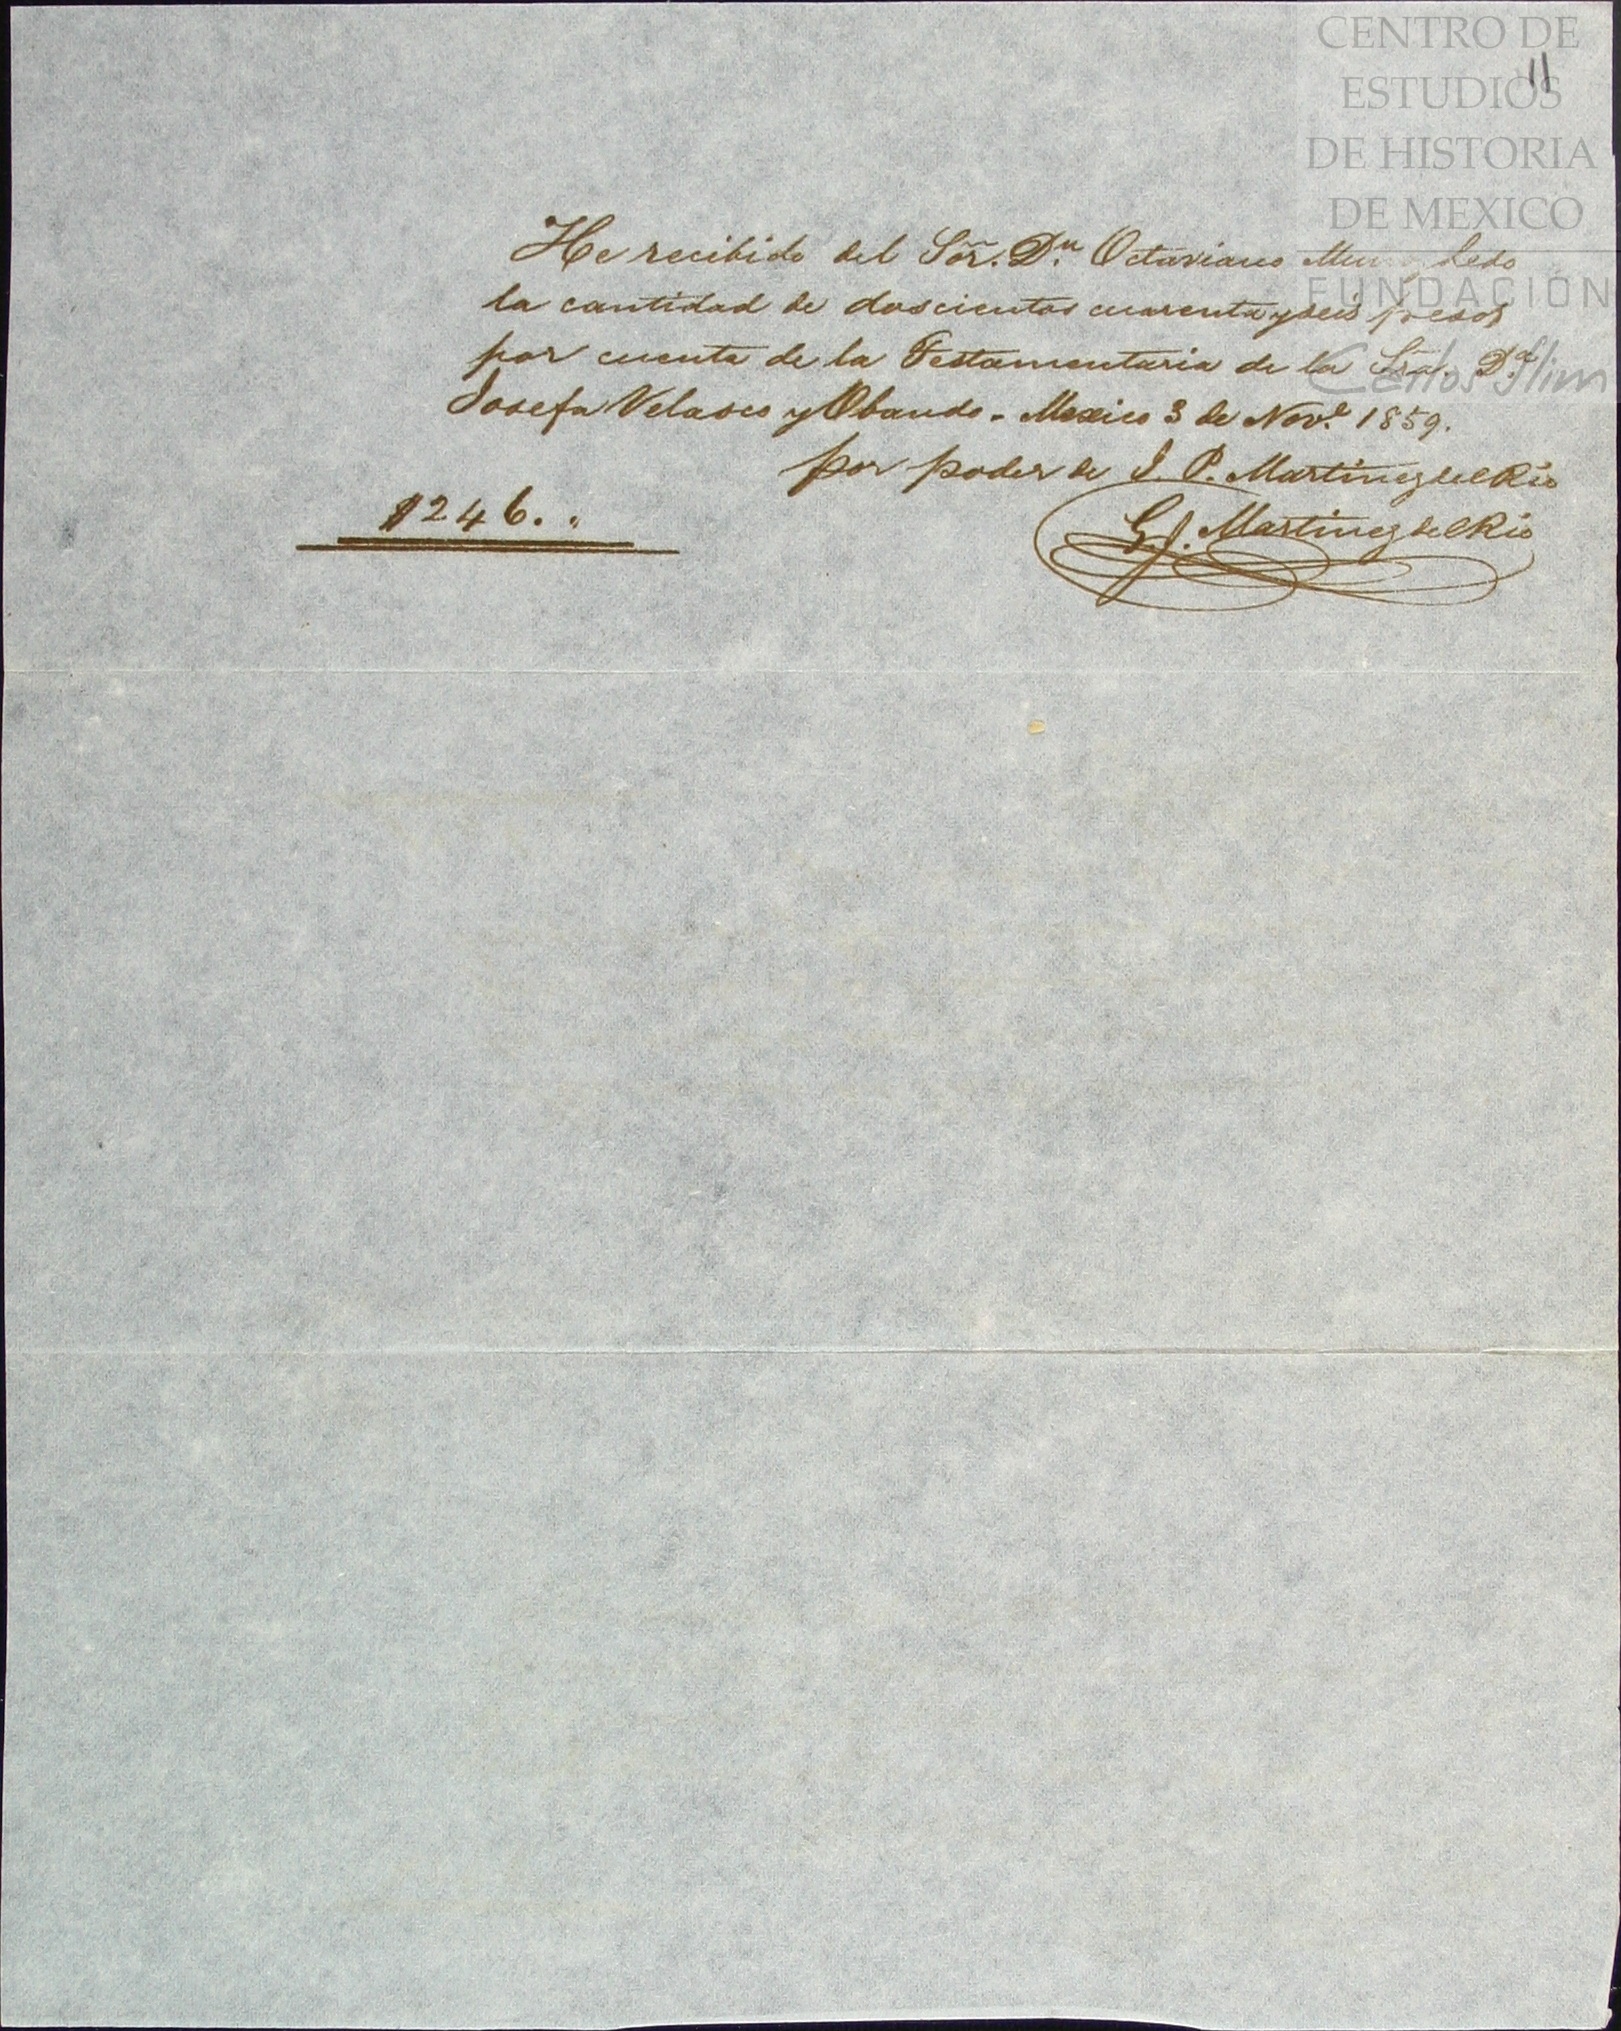 CENTRO DE
ESTUDIOS
DE HISTORIA
DE MEXICO
FUNDACIÓN
Carlos Slim
11
He recibido del Sör. Dn. Octaviano Ledo
la cantidad de doscientos cuarenta y seis pesos
por cuenta de la Testamentaria de la Sra. Da.
Josefa Velasco y Obando - Mexico 3 de Nove. 1859.
por poder de J. P. Martinez del Rio
$246. "
G J. Martinez del Rio